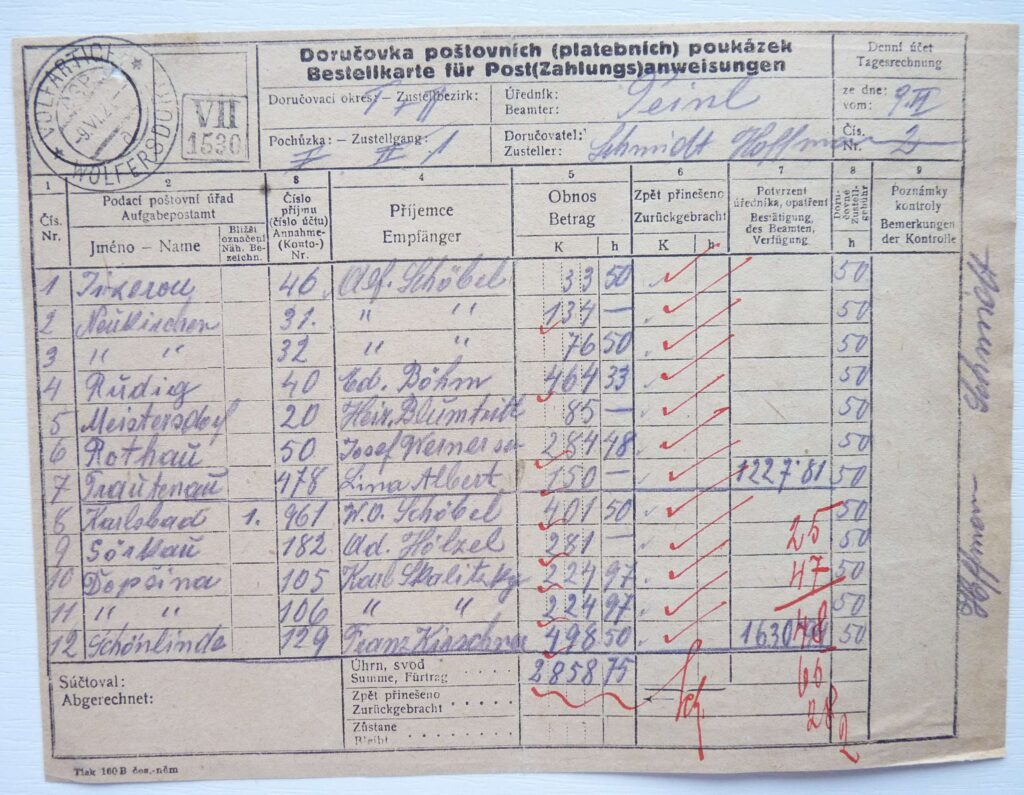 Doručovka poštovních (platebních) poukázek
Bestellkarte für Post(Zahlungs)anweisungen
Denní účet
Tagesrechnung
VOLFARTICE
WOLFERSDORF
-9.VI.2
a
VII
1530
Doručovací okres: – Zustellbezirk:
Úředník:
Beamter: Peinl
ze dne:
vom: 9.VI
Pochůzka: – Zustellgang: II II/1
Doručovatel:
Zusteller: Schmidt Hoffmann
Čís.
Nr. 2
1 2 3 4 5 6 7 8 9
Čís.
Nr.
Podací poštovní úřad
Aufgabepostamt
Jméno – Name
Bližší
označení
Näh. Be-
zeichn.
Číslo
příjmu
(číslo účtu)
Annahme-
(Konto-)
Nr.
Příjemce
Empfänger
Obnos
Betrag
K h
Zpět přinešeno
Zurückgebracht
K h
Potvrzení
úředníka, opatření
Bestätigung
des Beamten,
Verfügung
Doru-
čovné
Zustell-
gebühr
h
Poznámky
kontroly
Bemerkungen
der Kontrolle
1 46 Alf. Schöbel 33 50 50
2 Neukirchen 31. " " 134 — 50
3 " " 32 " " 76 50 50
4 Rudig 40 Ed. Böhm 464 33 50
5 Meistersdorf 20 Heir. Blumtritt 85 — 50
6 Rothau 50 Josef Werner 284 48 50
7 Trautenau 478 Lina Albert 150 — 1227'81 50
8 Karlsbad 1. 961 W.O. Schöbel 401 50 50
9 Sörkau 182 Ad. Hölzel 281 — 25 50
10 Dopšina 105 Karl Skalitzky 224 97 47 50
11 " " 106 " " 224 97 50
12 Schönlinde 129 Franz Kirschner 498 50 1630 48 50
Súčtoval:
Abgerechnet:
Úhrn, svod
Summe, Fürtrag 2858 75
66
Zpět přinešeno
Zurückgebracht
28
2
Zůstane
Bleibt
Tlak 160 B čes.-něm
Hoffmann Schmidt